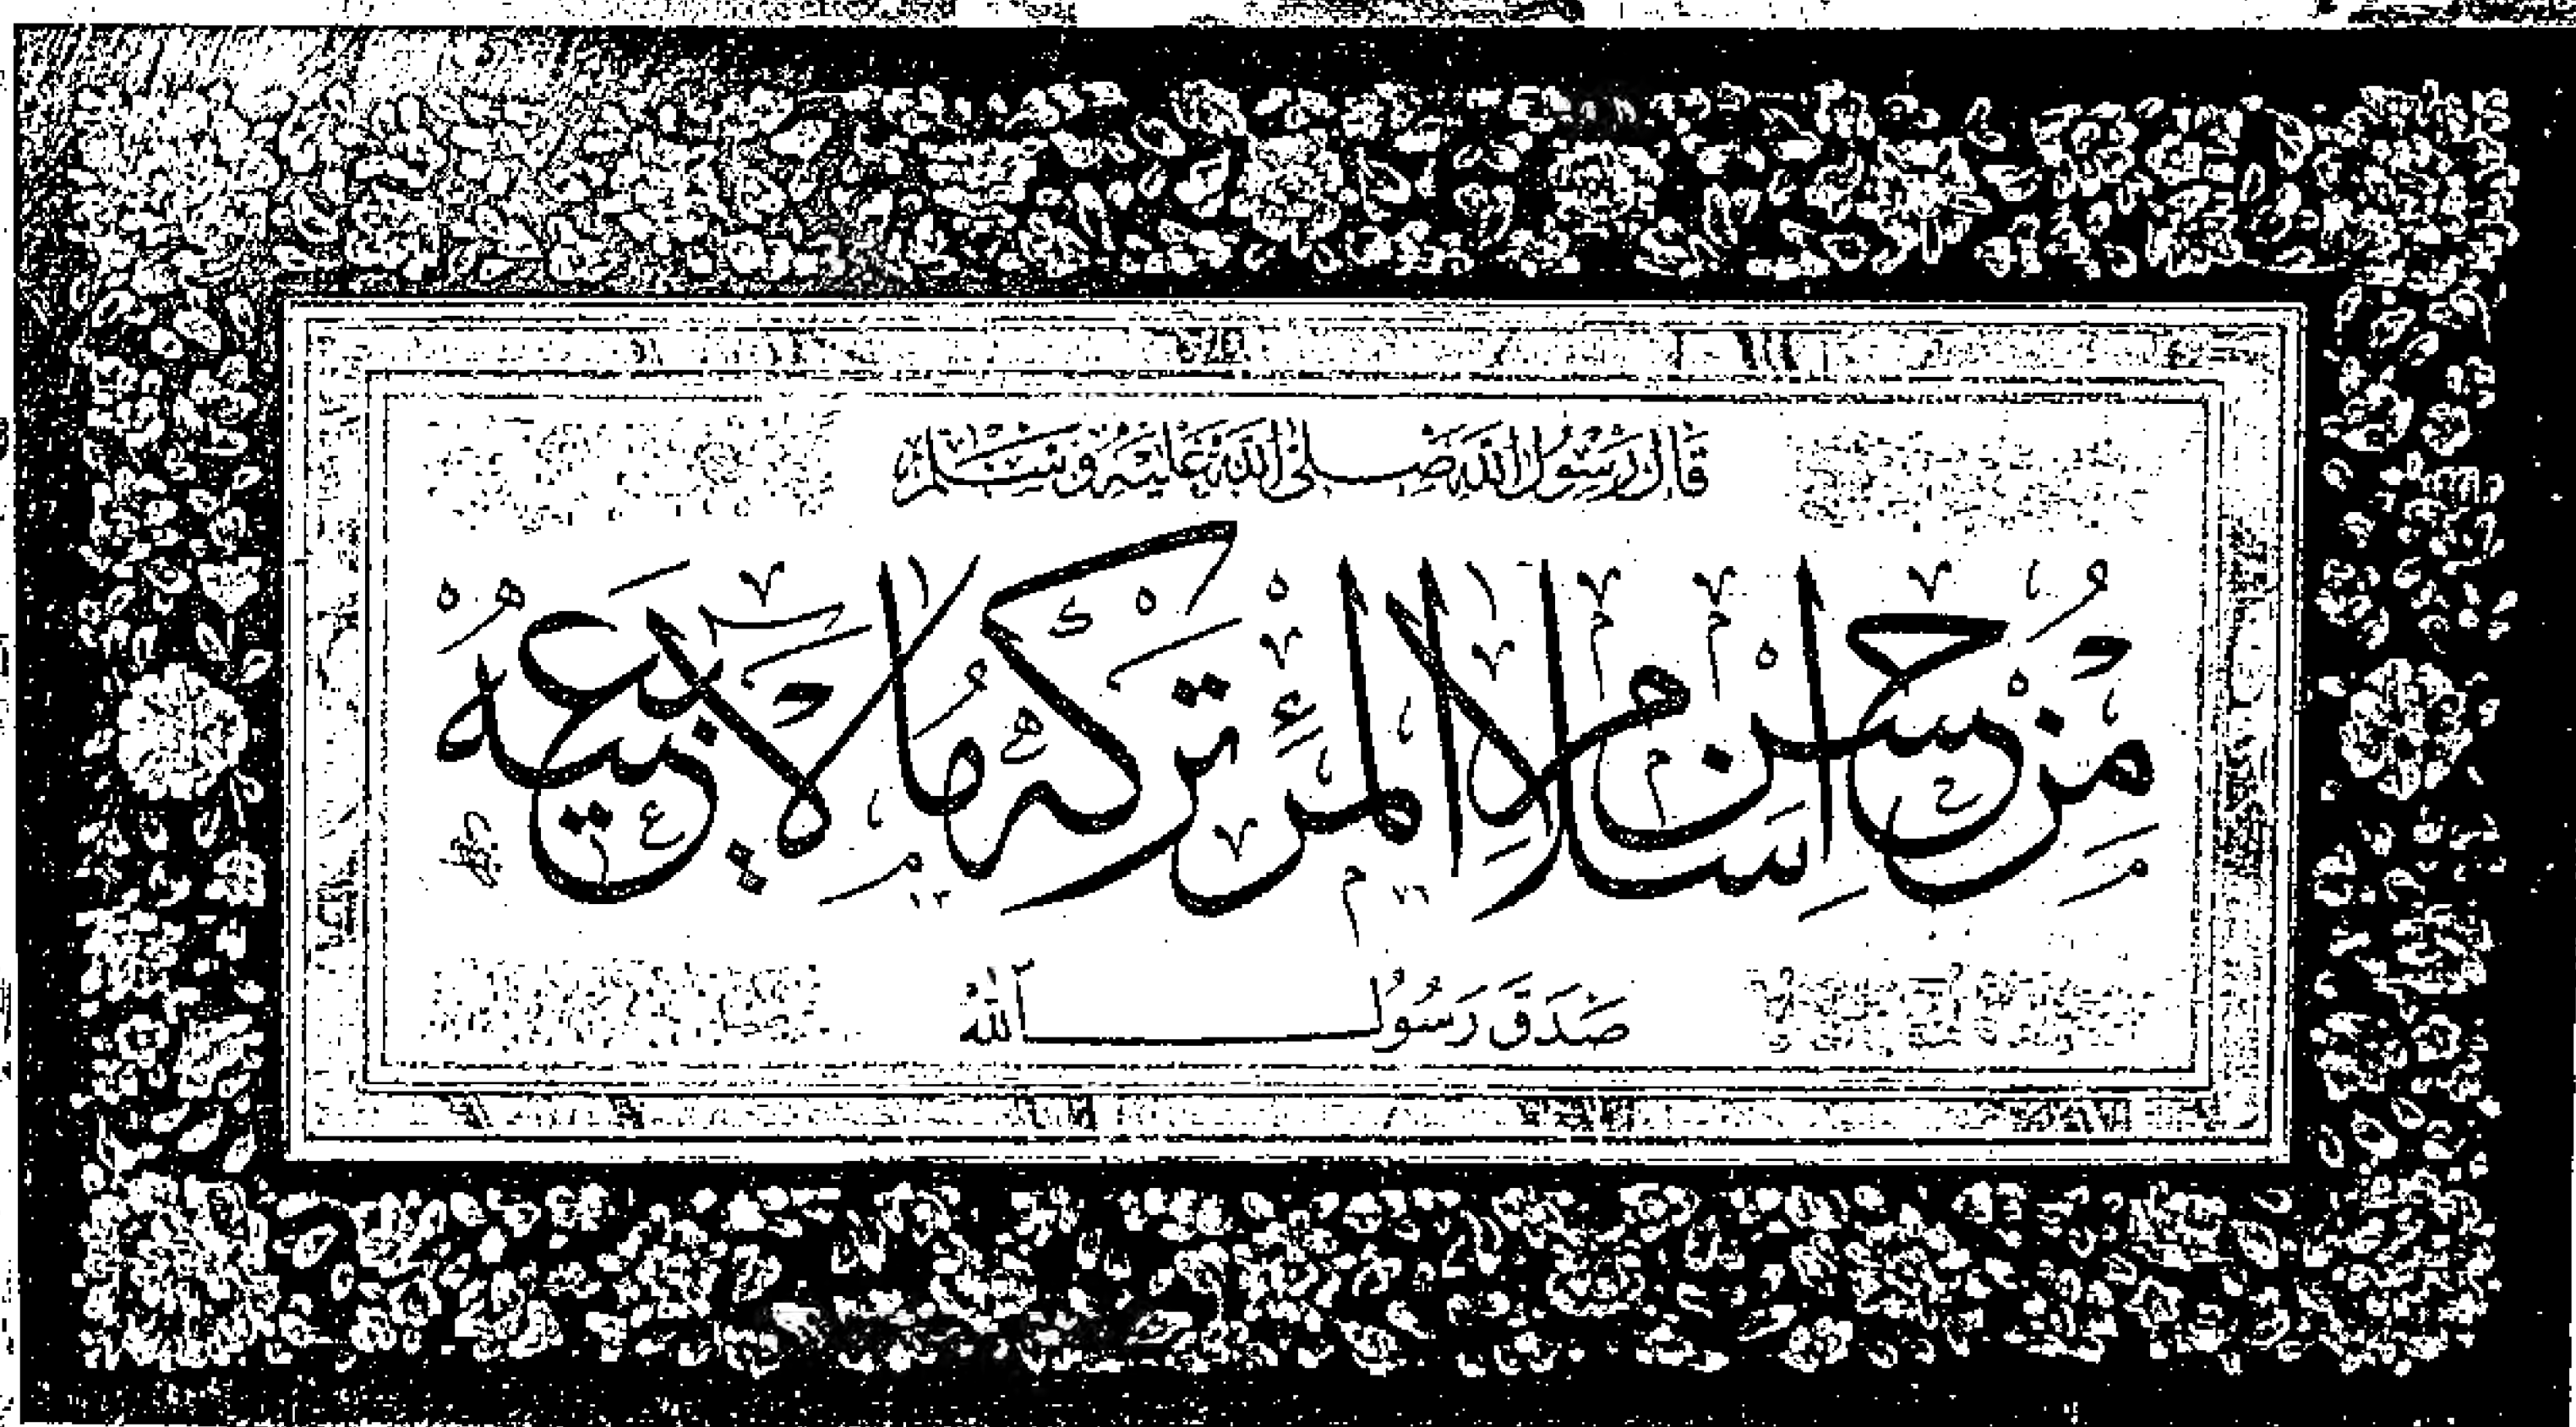 قَالَ رَسُولُ اللهِ صَلَّى اللهُ عَلَيْهِ وَسَلَّمَ
مِنْ حُسْنِ إِسْلَامِ الْمَرْءِ تَرْكُهُ مَا لَا يَعْنِيهِ
صَدَقَ رَسُولُ اللهِ